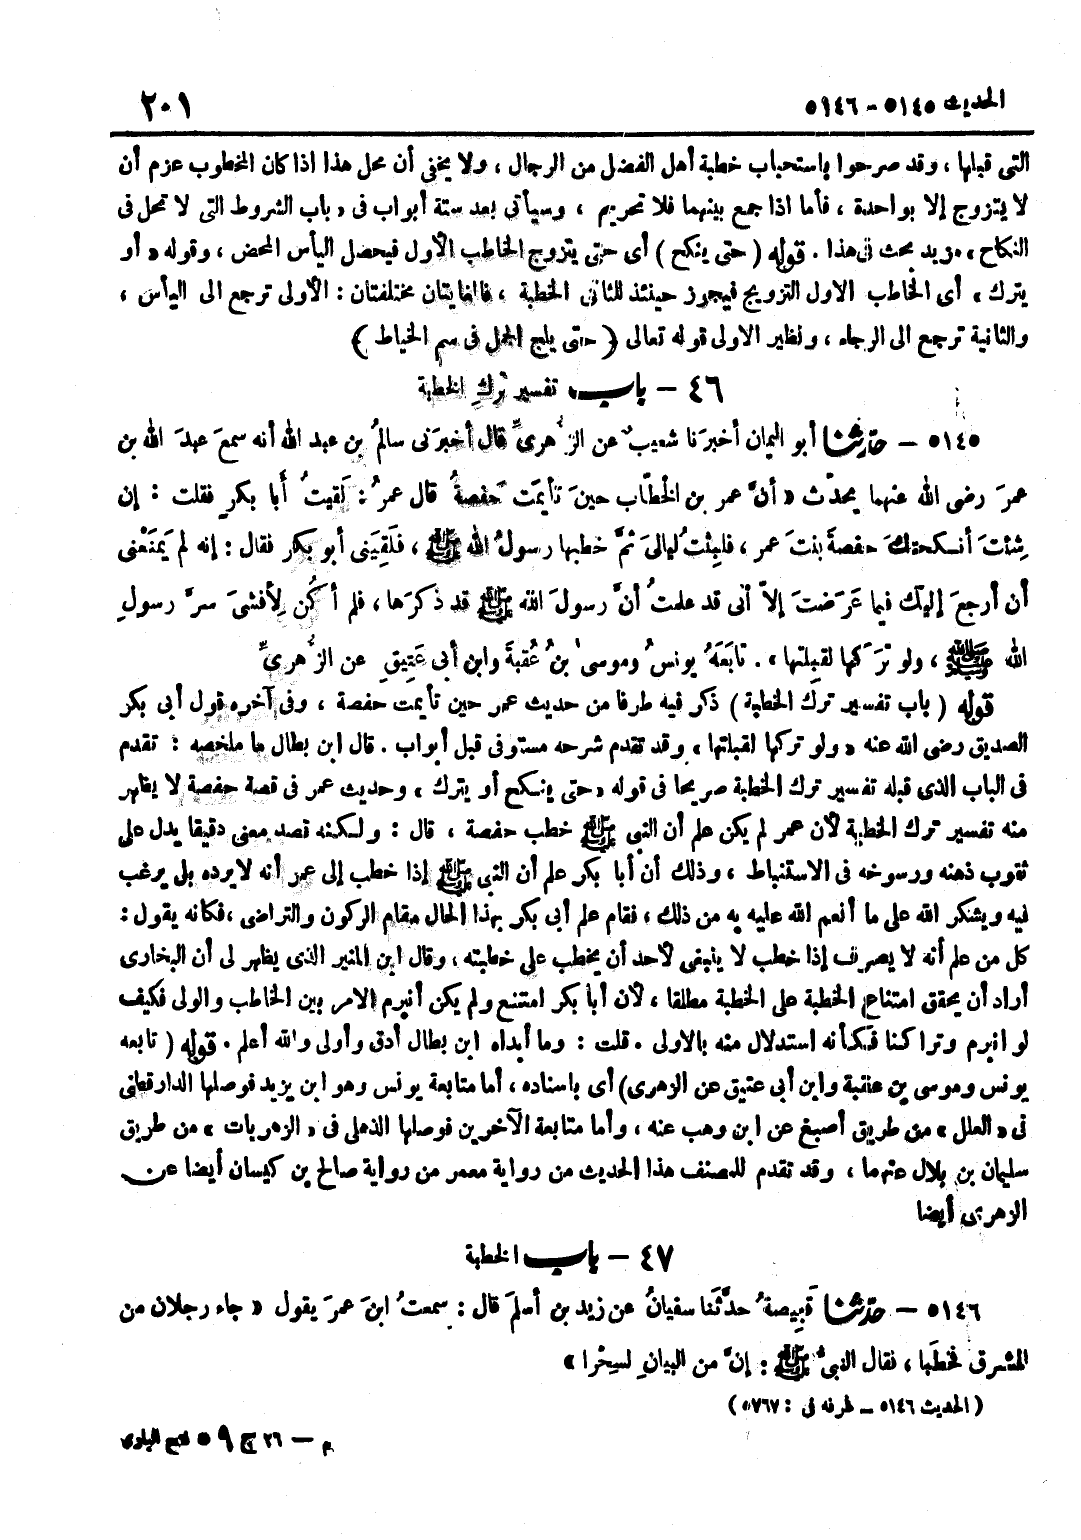 الحديث ٥١٤٥ - ٥١٤٦
٢٠١
التى قبلها ، وقد صرحوا باستحباب خطبة أهل الفضل من الرجال ، ولا يخفى أن محل هذا اذا كان المخطوب عزم أن
لا يتزوج إلا بواحدة ، فأما اذا جمع بينهما فلا تحريم ، وسيأتى بعد ستة أبواب فى « باب الشروط التى لا تحل فى
النكاح » مزيد بحث فى هذا . قوله ( حتى ينكح ) أى حتى يتزوج الخاطب الأول فيحصل اليأس المحض ، وقوله « أو
يترك » أى الخاطب الاول التزويج فيجوز حينئذ للثانى الخطبة ، فالغايتان مختلفتان : الأولى ترجع الى اليأس ،
والثانية ترجع الى الرجاء ، ونظير الاولى قوله تعالى ﴿ حتى يلج الجمل فى سم الخياط ﴾
٤٦ - باب تفسير تركِ الخطبة
٥١٤٥ - حدّثنا أبو اليمان أخبرَنا شعيبٌ عن الزُّهرىِّ قال أخبرَنى سالمُ بن عبد الله أنه سمعَ عبدَ الله بن
عمرَ رضى الله عنهما يحدّث « أنَّ عمر بن الخطّاب حينَ تأيمَت حَفصةُ قال عمرُ : لَقيتُ أبا بكرٍ فقلت : إن
شِئتَ أنكحتكَ حفصةَ بنتَ عمر ، فلبِثْتُ ليالىَ ثمَّ خطبها رسولُ الله ﷺ ، فلَقِيَنى أبو بكر فقال : إنه لم يَمنَعْنى
أن أرجعَ إليكَ فيما عَرَضتَ إلاّ أنى قد علمتُ أنَّ رسولَ الله ﷺ قد ذكرَها ، فلم أكُن لِأفشىَ سرَّ رسولِ
الله ﷺ ، ولو تَرَكها لقبِلتها » . تابَعَهُ يونسُ وموسىٰ بنُ عُقبةَ وابن أبى عَتِيقٍ عن الزُّهرىِّ
قوله ( باب تفسير ترك الخطبة ) ذكر فيه طرفا من حديث عمر حين تأيمت حفصة ، وفى آخره قول أبى بكر
الصديق رضى الله عنه « ولو تركها لقبلتها » وقد تقدم شرحه مستوفى قبل أبواب . قال ابن بطال ما ملخصه : تقدم
فى الباب الذى قبله تفسير ترك الخطبة صريحا فى قوله « حتى ينكح أو يترك » وحديث عمر فى قصة حفصة لا يظهر
منه تفسير ترك الخطبة لأن عمر لم يكن علم أن النبى ﷺ خطب حفصة ، قال : ولكنه قصد معنى دقيقا يدل على
ثقوب ذهنه ورسوخه فى الاستنباط ، وذلك أن أبا بكر علم أن النبى ﷺ إذا خطب إلى عمر أنه لا يرده بل يرغب
فيه ويشكر الله على ما أنعم الله عليه به من ذلك ، فقام علم أبى بكر بهذا الحال مقام الركون والتراضى ، فكانه يقول :
كل من علم أنه لا يصرف إذا خطب لا ينبغى لأحد أن يخطب على خطبته ، وقال ابن المنير الذى يظهر لى أن البخارى
أراد أن يحقق امتناع الخطبة على الخطبة مطلقا ، لأن أبا بكر امتنع ولم يكن أنبرم الامر بين الخاطب والولى فكيف
لو انبرم وتراكنا فكأنه استدلال منه بالاولى . قلت : وما أبداه ابن بطال أدق وأولى والله أعلم . قوله ( تابعه
يونس وموسى بن عقبة وابن أبى عتيق عن الزهرى ) أى باسناده ، أما متابعة يونس وهو ابن يزيد فوصلها الدارقطنى
فى « العلل » من طريق أصبغ عن ابن وهب عنه ، وأما متابعة الآخرين فوصلها الذهلى فى « الزهريات » من طريق
سليمان بن بلال عنهما ، وقد تقدم للمصنف هذا الحديث من رواية معمر من رواية صالح بن كيسان أيضا عن
الزهرى أيضا
٤٧ - باب الخطبة
٥١٤٦ - حدّثنا قَبِيصةُ حدَّثَنا سفيانُ عن زيد بن أسلمَ قال : سمعتُ ابنَ عمرَ يقول « جاء رجلان من
المشرق فخطَبا ، فقال النبىُّ ﷺ : إنَّ من البيانِ لسِحْرا »
( الحديث ٥١٤٦ - طرفه فى : ٥٧٦٧ )
م - ٢٦ ج ٩ • فتح البارى